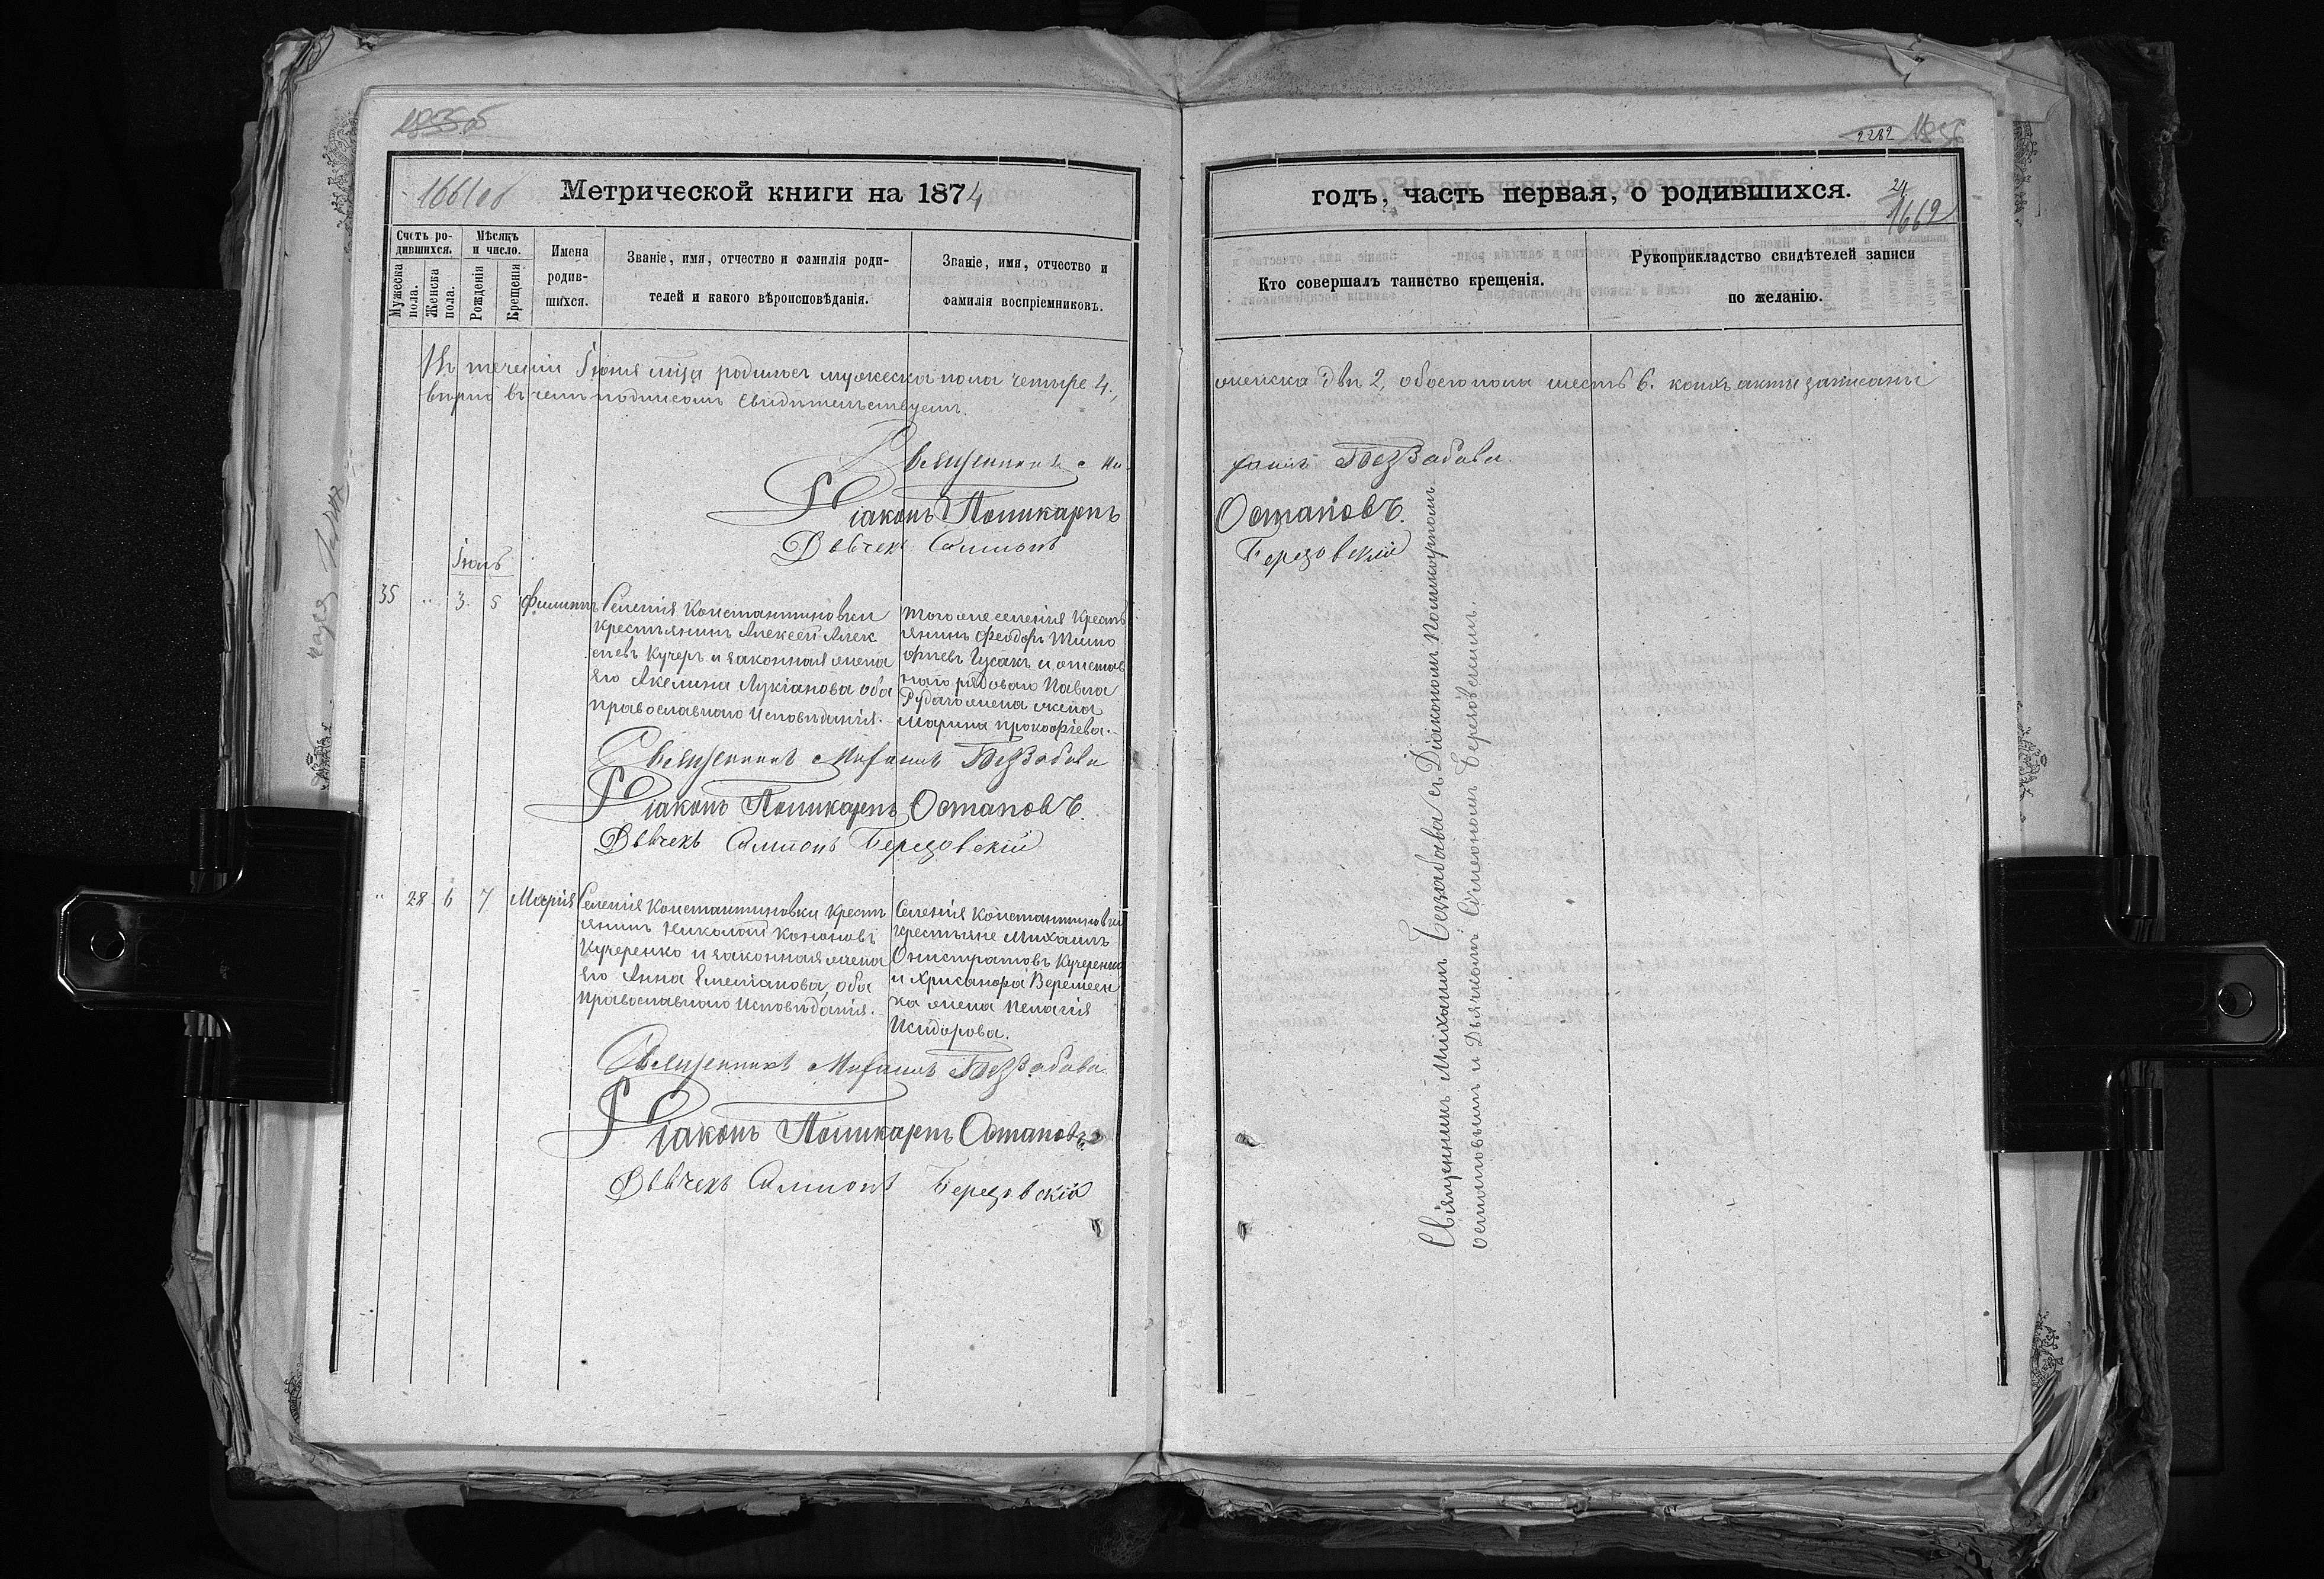 1661об
Метрической книги на 1874
Счетъ ро-
дившихся.
Мужеска
пола.
Женска
пола.
Мѣсяцъ
и число.
Рожденія
Крещенія
Имена
родив-
шихся.
Званіе, имя, отчество и фамилія роди-
телей и какого вѣроисповѣданія.
Званіе, имя, отчество и
фамилія воспріемниковъ.
Въ теченіи Іюня мца родилось мужеска пола четыре 4,
вѣрно въ чемъ подписомъ свидѣтельствуемъ.
Священникъ Ми-
Діаконъ Поликарпъ
Дьячекъ Симеонъ
Іюль
35 " 3 5 Филиппъ
Селенія Константиновки
крестьянинъ Алексей Алек
сеевъ Кучеръ и законная жена
его Акелина Лукіанова оба
православнаго исповѣданія.
Того же селенія Кресть
янинъ Феодоръ Тимо
феевъ Гусакъ и отстав
наго рядоваго Павла
жена
Марина Прокофіева.
Священникъ Михаилъ Беззабава
Діаконъ Поликарпъ Остаповъ.
Дьячекъ Симеонъ Березовскій
" 28 6 7 Марія
Селенія Константиновки Крест
янинъ Николай Кононовъ
Кучеренко и законная жена
его Анна Емеліанова, оба
Православнаго Исповѣданія.
Селенія Константиновки
крестьяне Михаилъ
Онистратовъ Кучеренко
и Хрисанфа Веремеен
ка жена Пелагія
Исидорова.
Священникъ Михаилъ Беззабава
Діаконъ Поликарпъ Остаповъ
Дьячекъ Симеонъ Березовскій
2282
годъ, часть первая, о родившихся.
24
1662
Кто совершалъ таинство крещенія.
Рукоприкладство свидѣтелей записи
по желанію.
женска двѣ 2, обоего пола шесть 6. коихъ акты записаны
хаилъ Беззабава
Остаповъ.
Березовскій
Священникъ Михаилъ Беззабава съ Діакономъ Поликарпомъ
Остаповымъ и Дьячкомъ Симеономъ Березовскимъ.